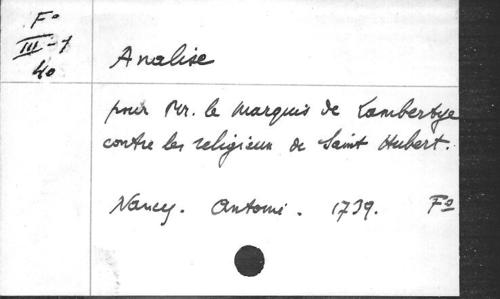 Fº
III-7
40
Analise
pour Mr. le Marquis de Lambertye
contre les religieux de Saint Hubert.
Nancy. Antoine. 1739. Fº